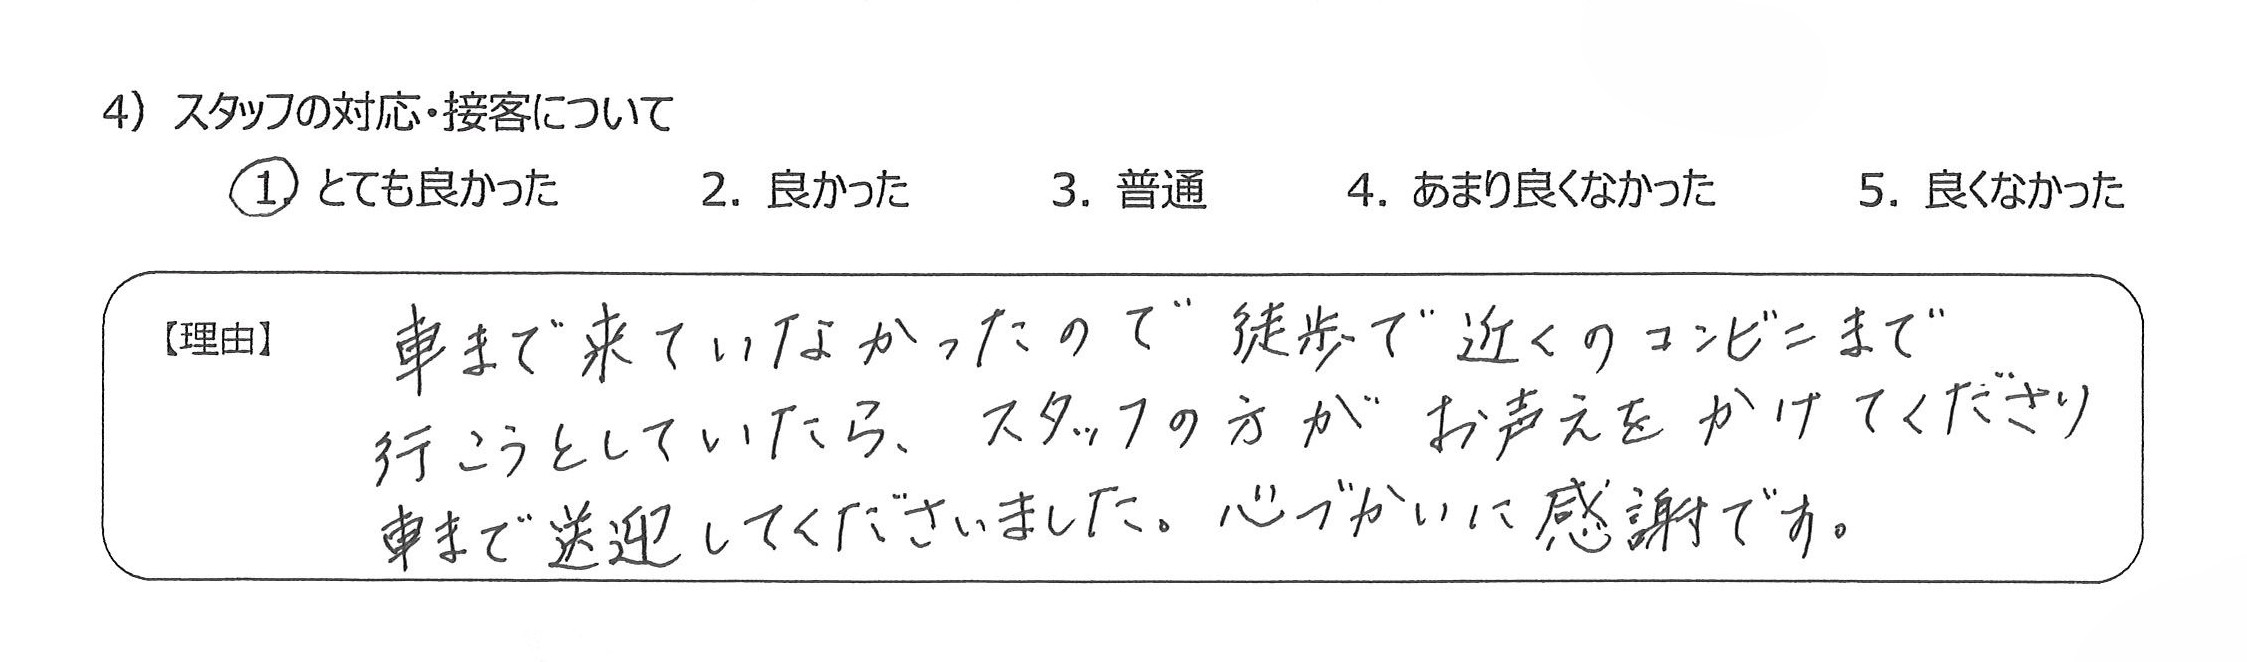 4) スタッフの対応・接客について
1. とても良かった 2. 良かった 3. 普通 4. あまり良くなかった 5. 良くなかった
【理由】 車まで来ていなかったので 徒歩で 近くのコンビニまで
行こうとしていたら、スタッフの方が お声えを かけてくださり
車まで送迎してくださいました。心づかいに感謝です。